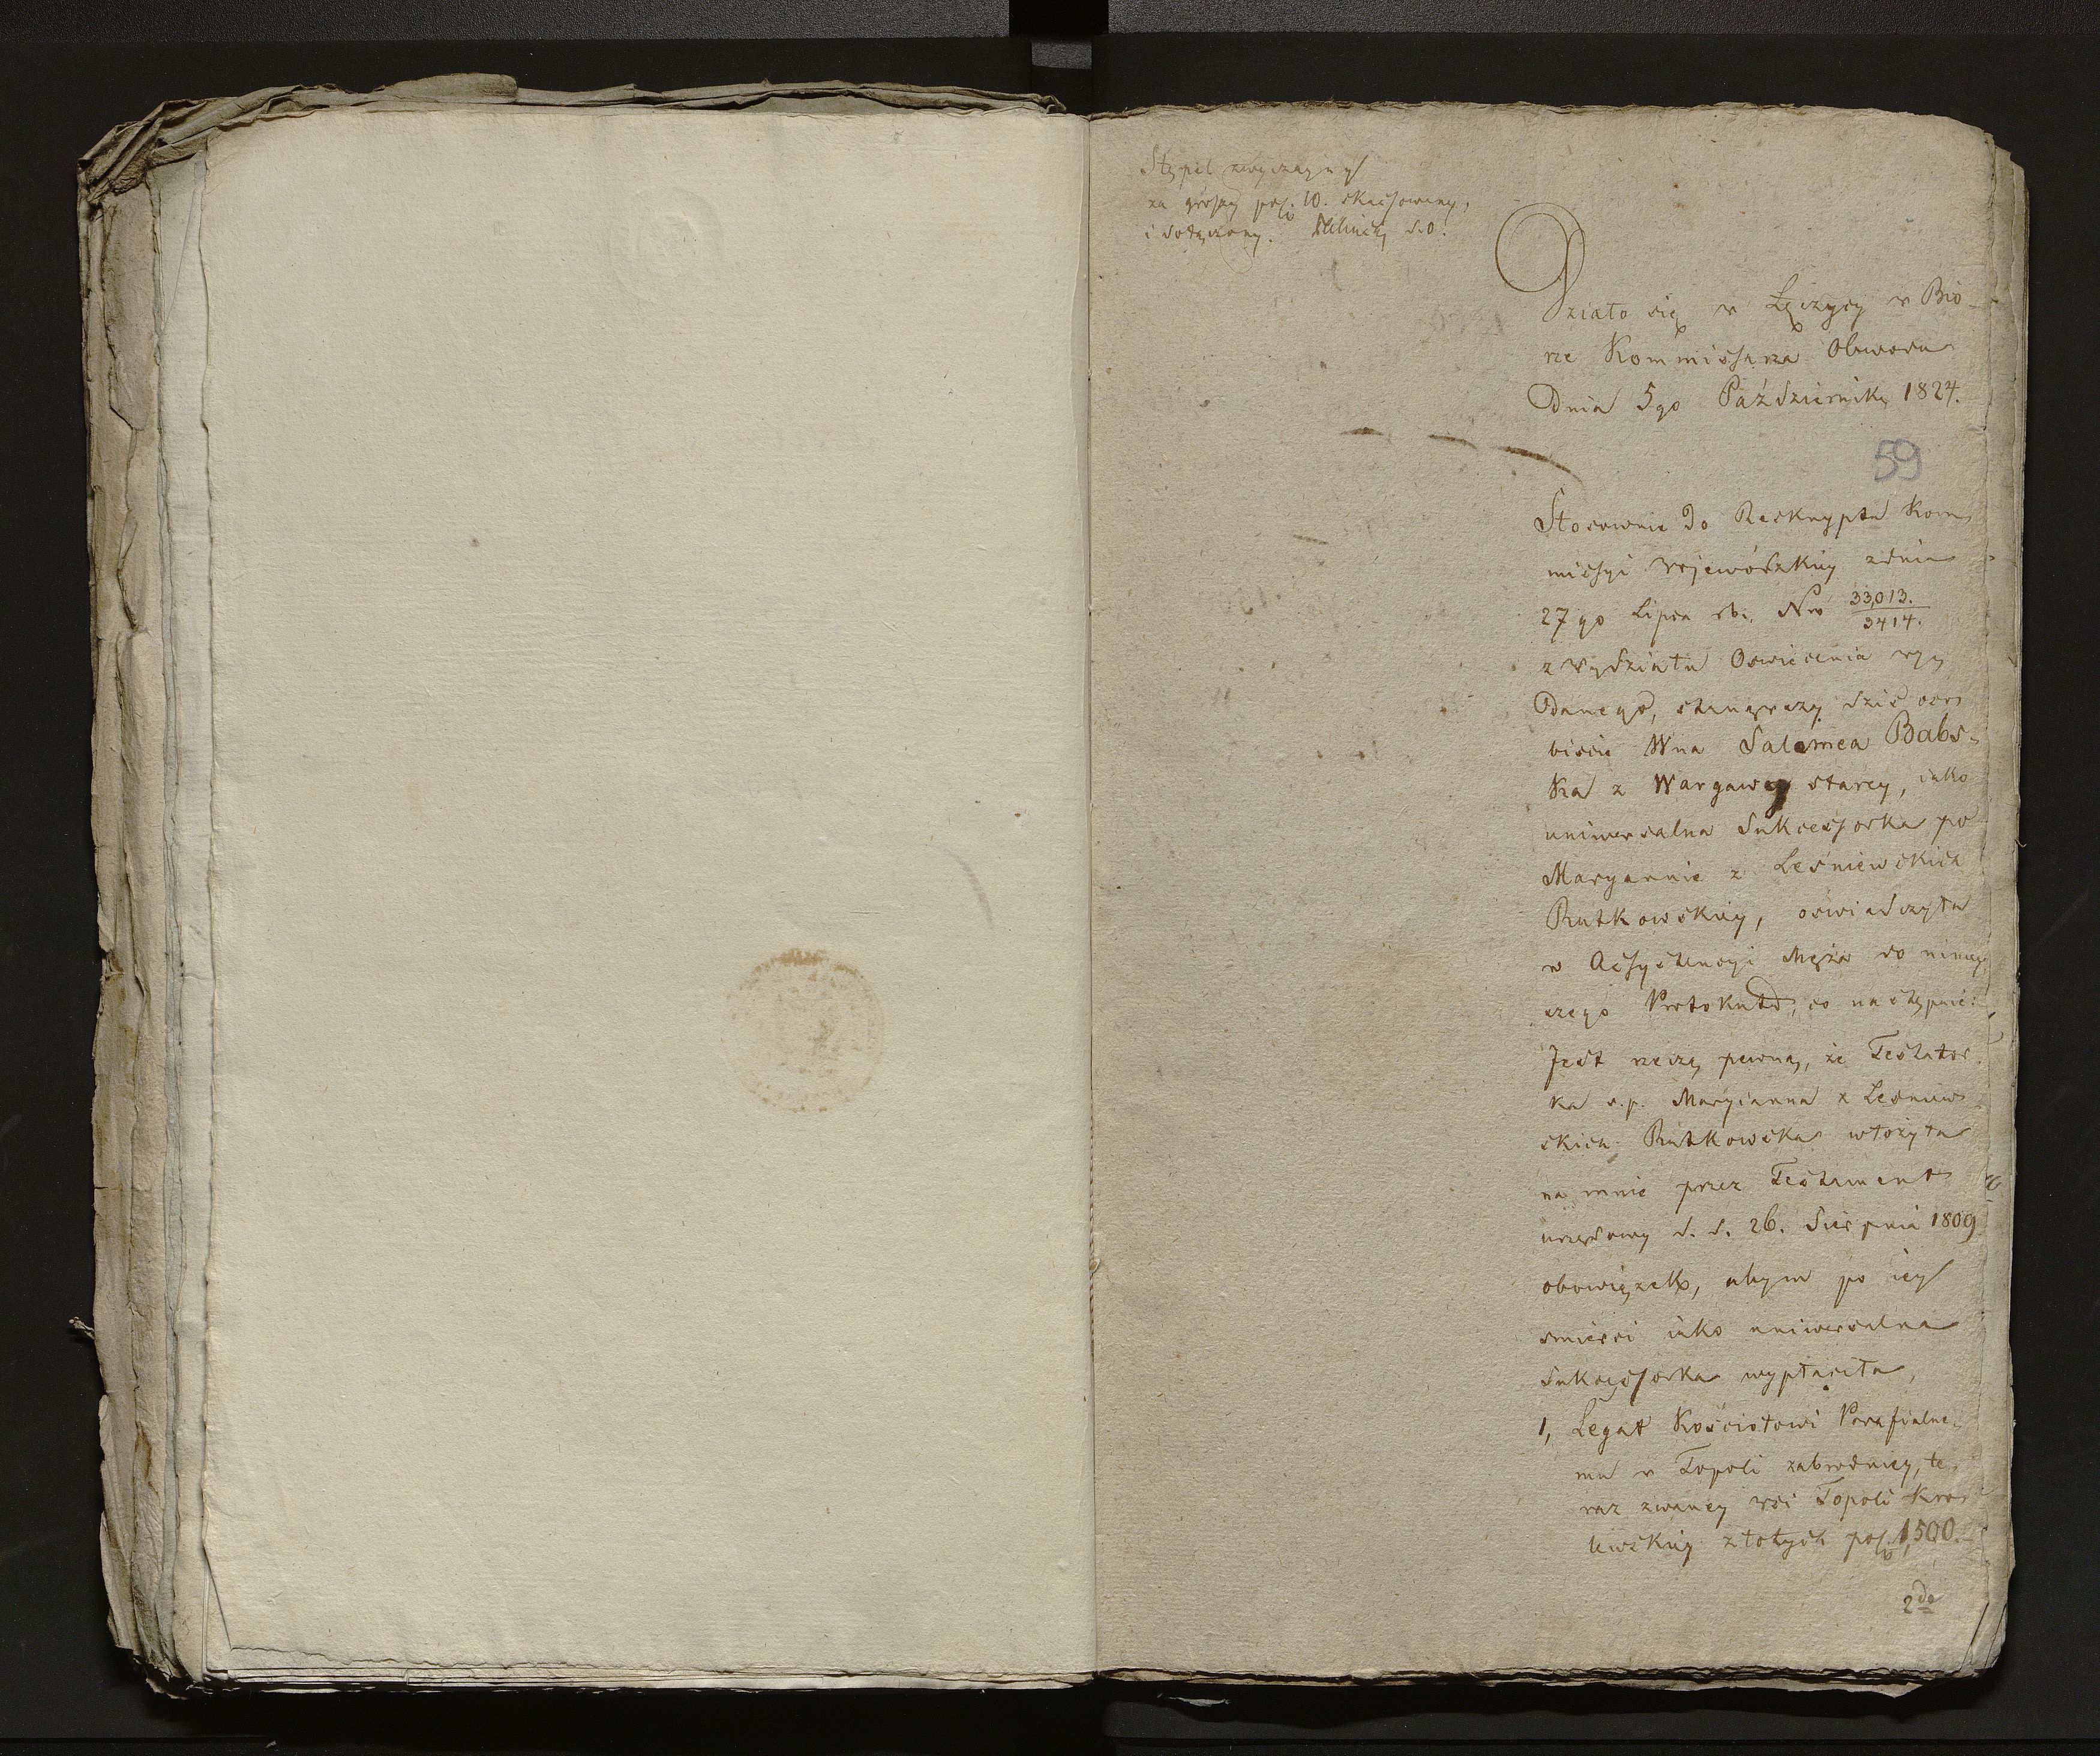 Stępel zwyczayny
za groszy pol. 10. skassowany,
i dołączony.
Działo się w Łęczycy w Biό-
rze Kommissarza Obwodu
Dnia 5go Październikа 1824.
59
Stosownie do Reskryptu Kom
missyi Wojewódzkiey zdnia
27go Lipca rb. Nro 33,013./3414.
z Wydziału Oswiecenia wy
danego, stanąwszy dziś oso
biście Wna Salomea Babs-
ka z Wargawy starey, iako
uniwersalna Sukcessorka po
Maryannie z Leśniewskich
Rutkowskiey, oświadczyła
w Assystencyi Męża do niniey
szego Protokułu, co następuie:
Jest rzeczą pewną, że Testator
ka s.p. Maryianna z Leśniew
skich Rutkowska włożyła
na mnie przez Testament
urzędowy d. d. 26. Sierpnia 1809
obowiązek, abym po iey
smierci iako uniwersalna
Sukcessorka wypłaciła,
1, Legat Kościołowi Parafialne-
mu w Topoli zabrodniey, te
raz zwaney wsi Topoli Kro
lewskiey złotych pol. 1,500.
2do